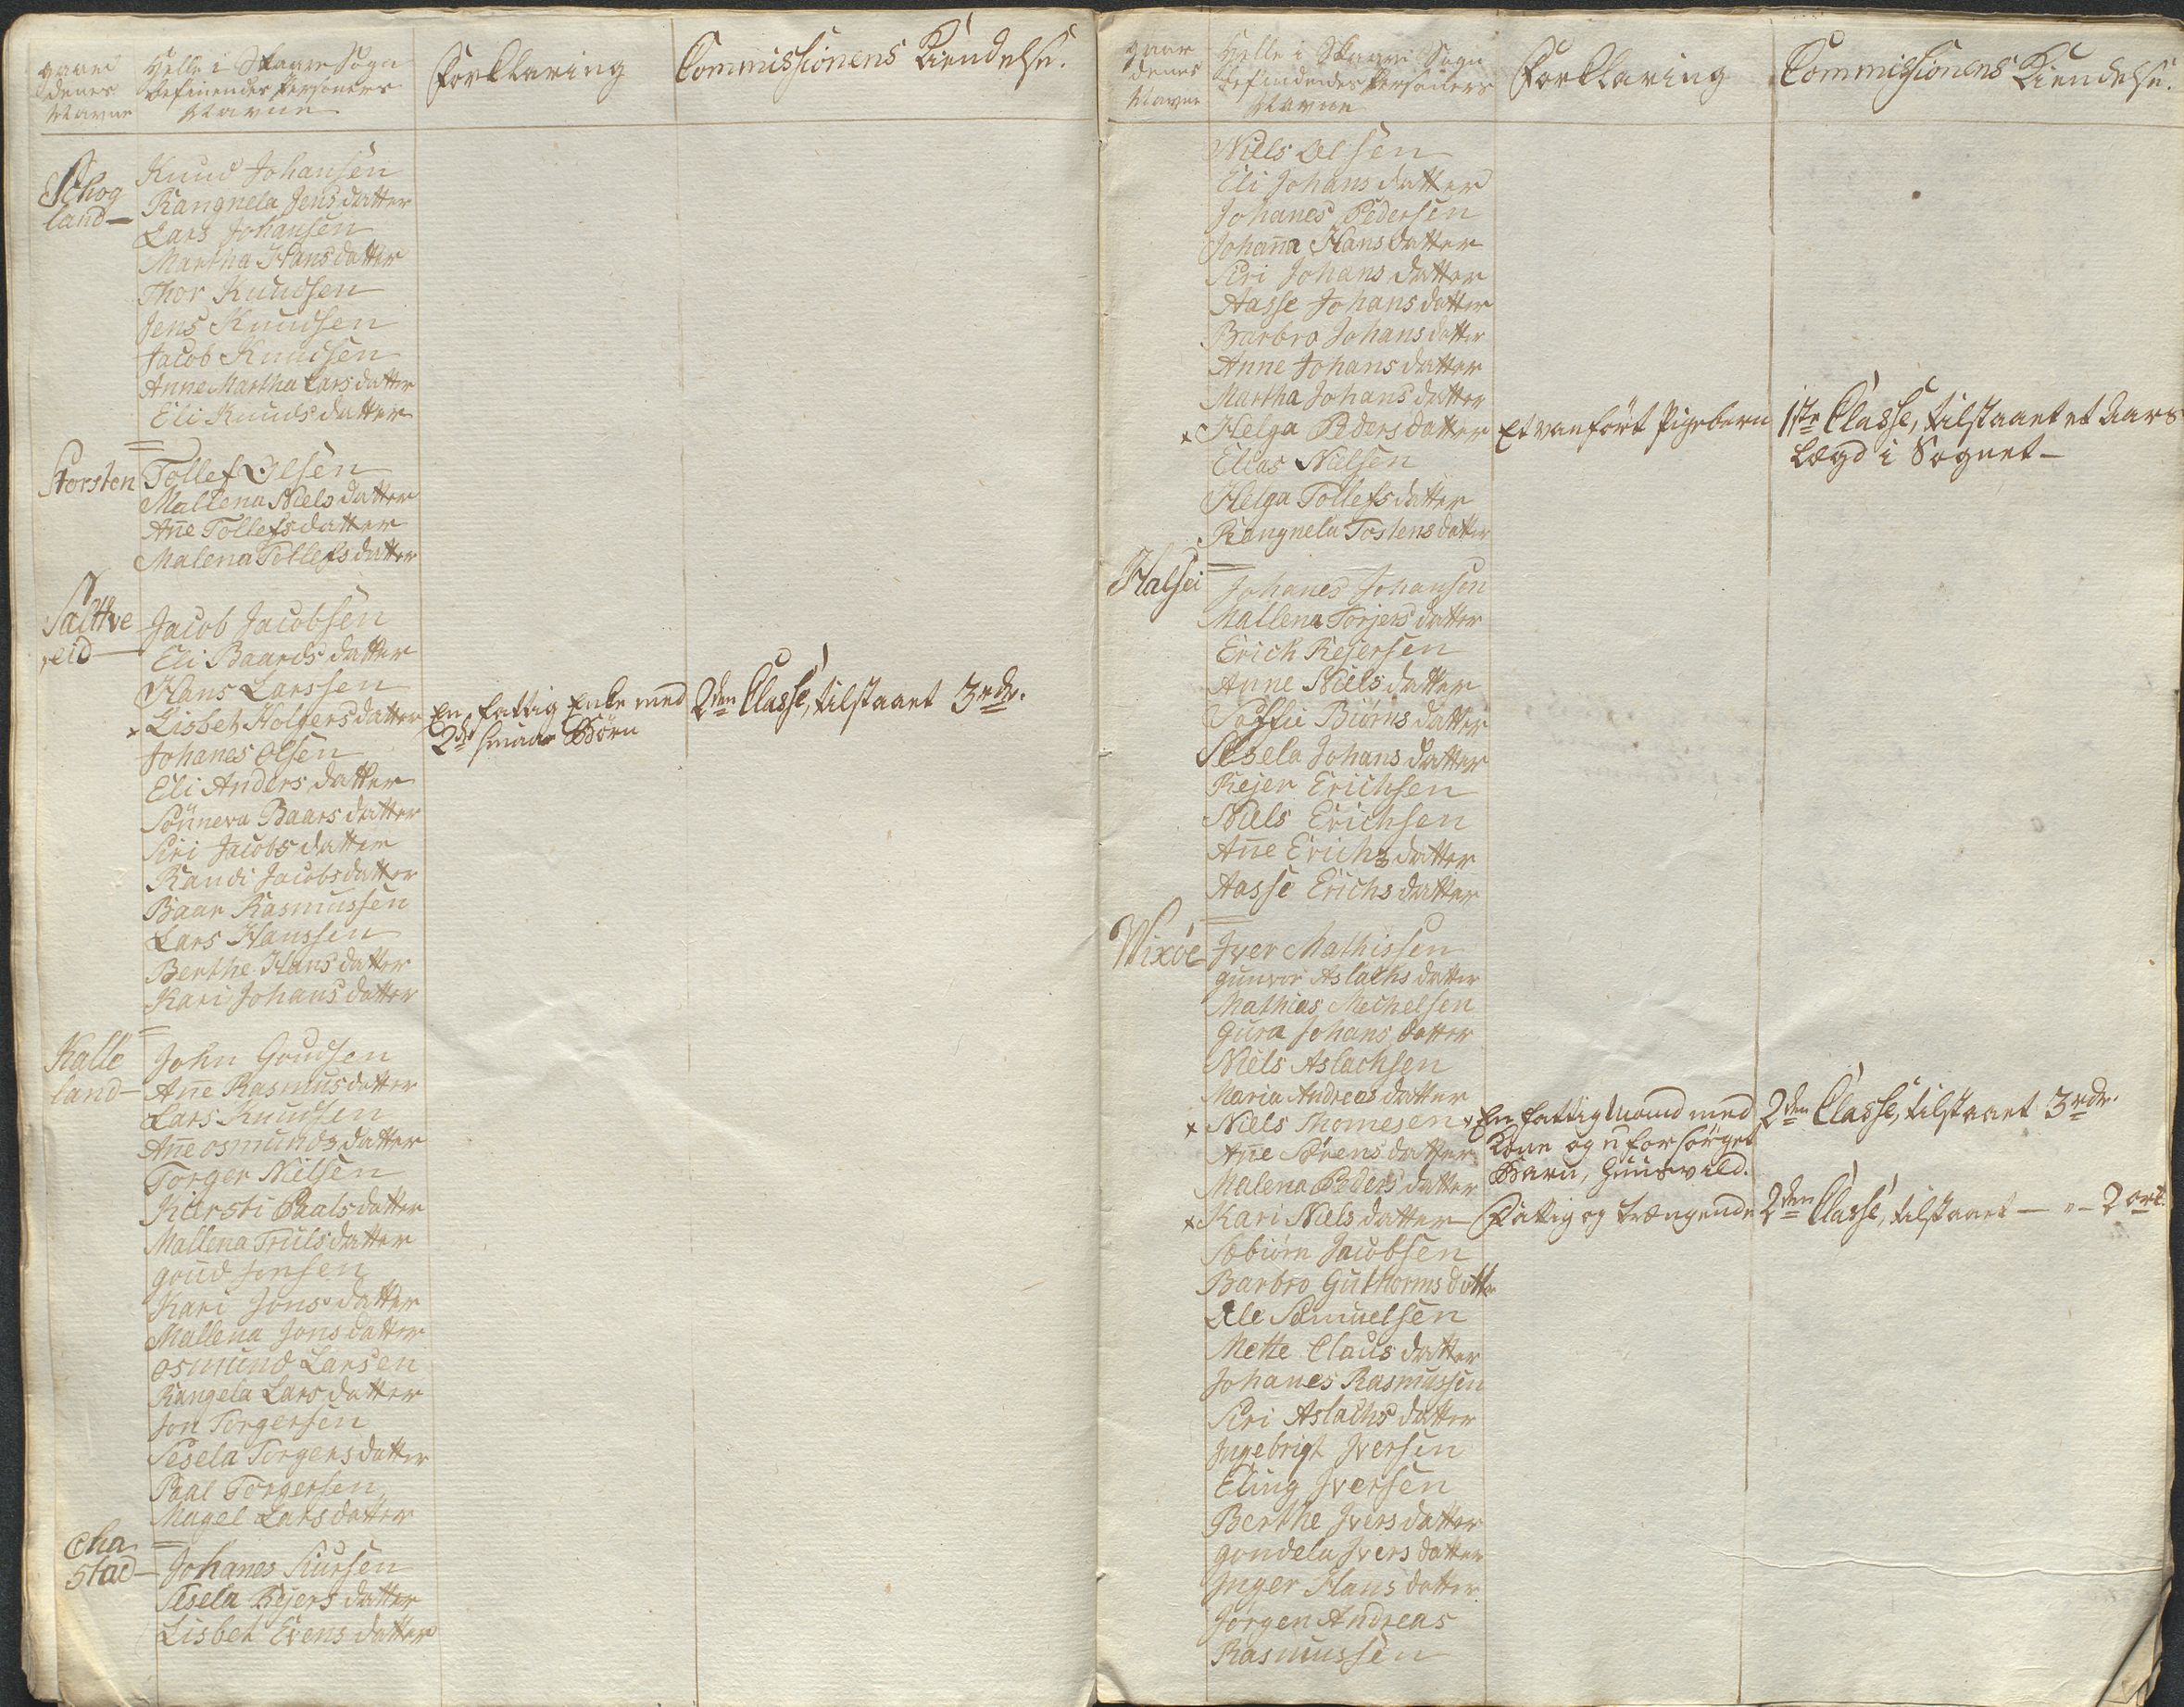 Gaardenes Navne
Helle i Skaare Sogn
befinnendes Personers
Navne
Forklaring
Commissionens Kiendelse.
Schog
land —
Knud Johansen
Rangnela Jensdatter
Lars Johansen
Martha Hansdatter
Thor Knudsen
Jens Knudsen
Jacob Knudsen
Anne Martha Larsdatter
Eli Knudsdatter
Storsten
Tollef Olsen
Mallena Nielsdatter
Añe Tollefsdatter
Malena Tollefsdatter
Salthve
eid —
Jacob Jacobsen
Eli Baardsdatter
Hans Larssen
× Lisbet Holgersdatter En fattig Enke med 2den Classe, tilstaaet 3 rdr.
2de smaae Børn
Johanes Olsen
Eli Andersdatter
Sönneva Baarsdatter
Siri Jacobsdatter
Randi Jacobsdatter
Baar Rasmussen
Lars Hanssen
Berthe Hansdatter
Kari Johansdatter
Kalle
land —
John Goudsen
Añe Rasmusdatter
Lars Knudsen
Añe Osmundsdatter
Torger Nilsen
Kiersti Paalsdatter
Mallena Trulsdatter
Goud Jonsen
Kari Jonsdatter
Mallena Jonsdatter
Osmund Larsen
Rangela Larsdatter
Jon Torgersen
Sesela Torgersdatter
Paal Torgersen
Magel Larsdatter
stad —
Johanes Siursen
Sesela Rejersdatter
Lisbet Evensdatter
Gaardenes Navne
Helle i Skaare Sogn
befindendes Personers
Navne
Forklaring
Commissionens Kiendelse.
Niels Olsen
Eli Johansdatter
Johanes Pedersen
Johaña Hansdatter
Siri Johansdatter
Aasse Johansdatter
Barbro Johansdatter
Anne Johansdatter
Martha Johansdatter
× Helga Pedersdatter Et vanført Pigebarn 1ste Classe, tilstaaet et Aars
Lægd i Sognet —
Elias Nilsen
Helga Tollefsdatter
Rangnela Tostensdatter
Halsei
Johanes Johansen
Mallena Torjersdatter
Erich Rejersen
Anne Nielsdatter
Soffie Biörnsdatter
Sesela Johansdatter
Rejer Erichsen
Niels Erichsen
Añe Erichsdatter
Aasse Erichsdatter
Wixöe
Iver Mathissen
Gunvor Aslachsdatter
Mathias Mechelsen
Gura Johansdatter
Niels Aslachsen
Maria Andreasdatter
× Niels Thomesen × En fattig Mand med 2den Classe, tilstaaet 3 rdr.
Añe Sörensdatter Kone og uforsörget
Malena Pedersdatter Barn, Huusvild.
× Kari Nielsdatter — Fattig og trængende 2den Classe, tilstaaet — " — 2 ort.
Sebiörn Jacobsen
Barbro Guthormsdatter
Ole Samuelsen
Mette Clausdatter
Johanes Rasmussen
Siri Aslachsdatter
Ingebrigt Iversen
Eling Iversen
Berthe Iversdatter
Gondela Iversdatter
Inger Hansdatter
Jörgen Andreas
Rasmussen